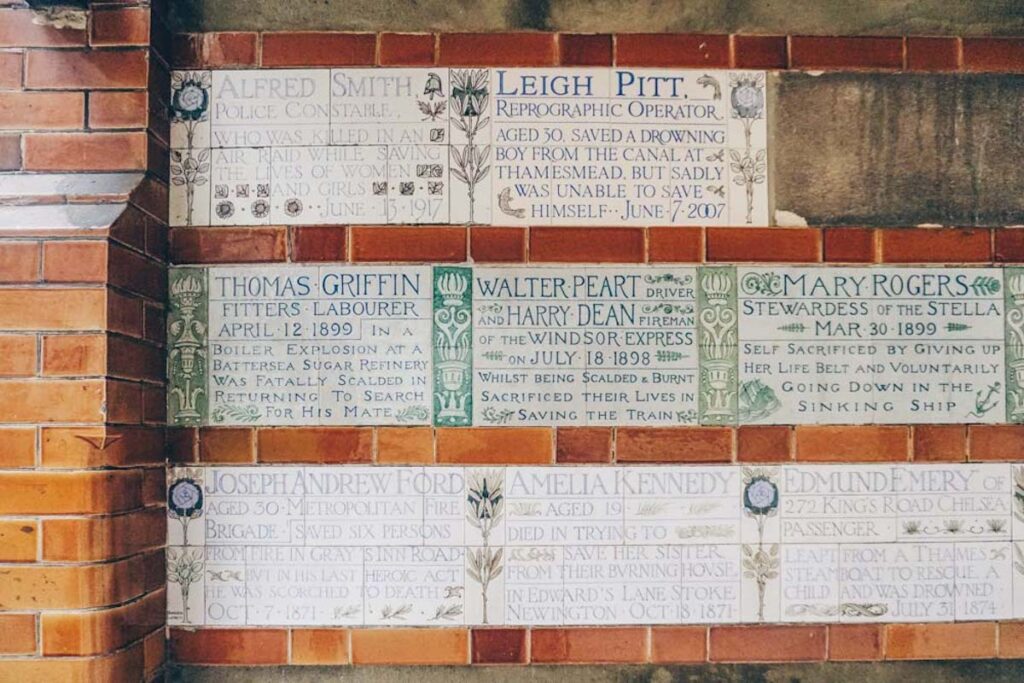 ALFRED SMITH,
POLICE CONSTABLE,
WHO WAS KILLED IN AN
AIR RAID WHILE SAVING
THE LIVES OF WOMEN
AND GIRLS
JUNE·13·1917
LEIGH PITT,
REPROGRAPHIC OPERATOR
AGED 30, SAVED A DROWNING
BOY FROM THE CANAL AT
THAMESMEAD, BUT SADLY
WAS UNABLE TO SAVE
HIMSELF··JUNE·7·2007
THOMAS·GRIFFIN
FITTERS·LABOURER
APRIL·12·1899 IN A
BOILER EXPLOSION AT A
BATTERSEA SUGAR REFINERY
WAS FATALLY SCALDED IN
RETURNING TO SEARCH
FOR HIS MATE
WALTER·PEART DRIVER
AND HARRY·DEAN FIREMAN
OF THE WINDSOR·EXPRESS
ON JULY·18·1898
WHILST BEING SCALDED & BURNT
SACRIFICED THEIR LIVES IN
SAVING THE TRAIN
MARY·ROGERS
STEWARDESS OF THE STELLA
MAR·30·1899
SELF SACRIFICED BY GIVING UP
HER LIFE BELT AND VOLUNTARILY
GOING DOWN IN THE
SINKING SHIP
JOSEPH ANDREW FORD
AGED 30·METROPOLITAN FIRE
BRIGADE·SAVED SIX PERSONS
FROM FIRE IN GRAY'S INN ROAD
BUT IN HIS LAST HEROIC ACT
HE WAS SCORCHED TO DEATH
OCT 7·1871
AMELIA KENNEDY
AGED 19
DIED IN TRYING TO
SAVE HER SISTER
FROM THEIR BURNING HOUSE
IN EDWARD'S LANE STOKE
NEWINGTON OCT 18·1871
EDMUND EMERY OF
272 KING'S ROAD CHELSEA
PASSENGER
LEAPT FROM A THAMES
STEAMBOAT TO RESCUE A
CHILD AND WAS DROWNED
JULY 31·1874